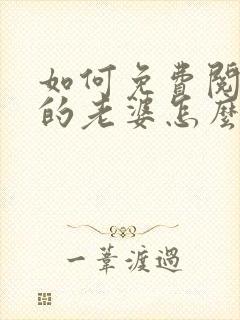 如何免費閱
的老婆怎麼
一葦渡過